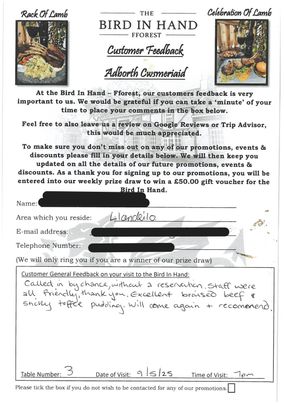 Rack Of Lamb
Celebration Of Lamb
THE
BIRD IN HAND
FFOREST
Customer Feedback
Adborth Cwsmeriaid
At the Bird In Hand – Fforest, our customers feedback is very
important to us. We would be grateful if you can take a 'minute' of your
time to place your comments in the box below.
Feel free to also leave us a review on Google Reviews or Trip Advisor,
this would be much appreciated.
To make sure you don't miss out on any of our promotions, events &
discounts please fill in your details below. We will then keep you
updated on all the details of our future promotions, events &
discounts. As a thank you for signing up to our promotions, you will be
entered into our weekly prize draw to win a £50.00 gift voucher for the
Bird In Hand.
Name:
Area which you reside: Llandeilo
E-mail address:
Telephone Number:
(We will only ring you if you are a winner of our prize draw)
Customer General Feedback on your visit to the Bird In Hand:
Called in by chance, without a reservation. Staff were
all friendly, thank you. Excellent braised beef &
sticky toffee pudding. Will come again + recommend.
Table Number: 3 Date of Visit: 9/5/25 Time of Visit: 7pm
Please tick the box if you do not wish to be contacted for any of our promotions.